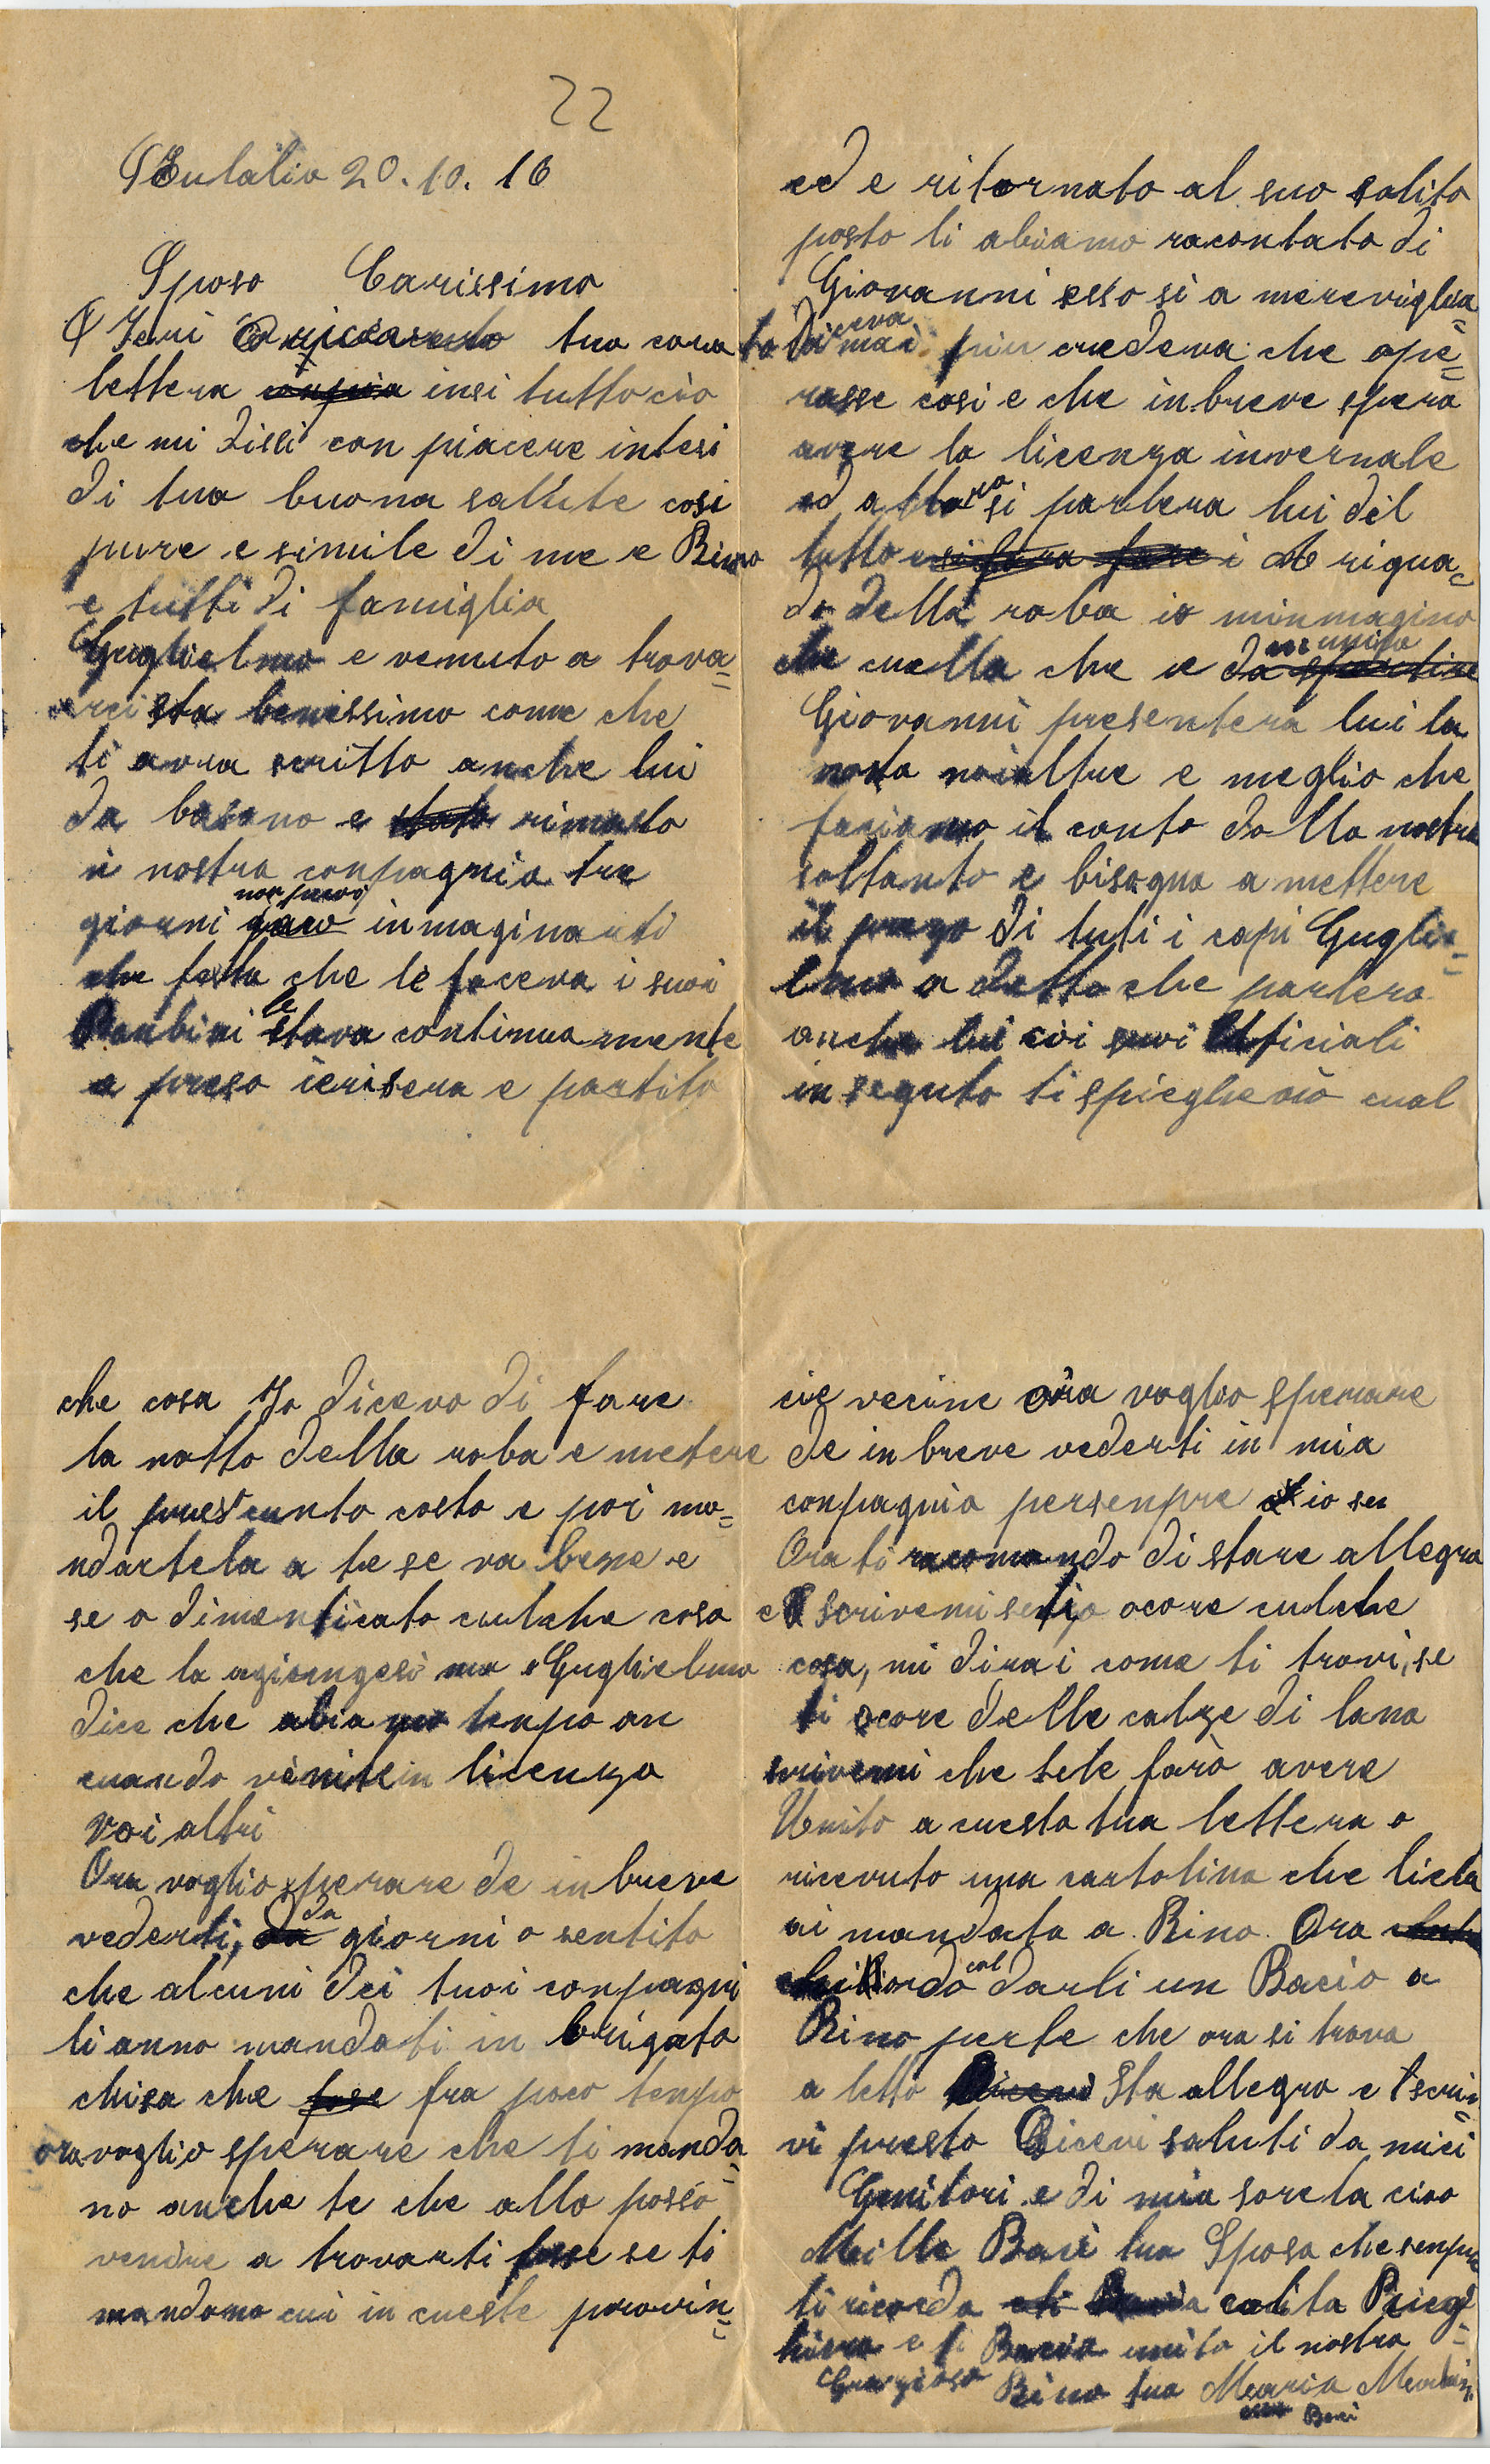 22
S Eulalia 20.10.16
Sposo Carissimo
Ieri tua cara
lettera insi tutto ciò
che mi dissi con piacere intesi
di tua buona sallute cosi
pure e simile di me e Rino
e tutti di famiglia
Guglielmo e venuto a trova=
arci sta benissimo come che
ti avra scritto anche lui
da basano e stato rimasto
i nostra conpagnia tre
giorni non puoi inmaginarti
che festa che le faceva i suoi
Banbini le stava continuamente
a preso ierisera e partito
ed e ritornato al suo solito
posto li abiamo racontato di
Giovanni esso si a mereviglia=
to diceva mai piu credeva che ope=
rasse cosi e che inbreve spera
avere la licenza invernale
ed allora si parlera lui del
tutto i A rigua=
do della roba io minmagino
che cuella che e unita
Giovanni presentera lui la
nota noialtre e meglio che
faciamo il conto dalla nostra
soltanto e bisogna a mettere
il prezo di tuti i capi Guglie=
lmo a detto che parlera
anche lui coi suoi Uficiali
in seguto ti spiegherò cual
che cosa Io dicevo di fare
la notta della roba e metere
il presunto costo e poi ma=
ndartela a te se va bene e
se o dimenticato cualche cosa
che la agiongesi ma Guglielmo
dice che abiamo tenpo an
cuando venite in licenza
voi altri
Ora voglio sperare de in breve
vederti, da giorni o sentito
che alcuni dei tuoi conpagni
li anno mandati in brigata
chisa che fose fra poco tenpo
ora voglio sperare che ti manda=
no anche te che allo posso
venire a trovarti fose se ti
mandano cui in cueste provin=
cie vecine ora voglio sperare
de in breve vederti in mia
conpagnia persenpre
Ora ti racomando di stare allegro
e scrivemi seti ocore cualche
cosa, mi dirai come ti trovi, se
ti ocore delle calze di lana
scrivemi che tele farò avere
Unito a cuesta tua lettera o
ricevuto una cartolina che liela
ai mandata a Rino. Ora
col darli un Bacio a
Rino perte che ora si trova
a letto Sta allegro e scri=
vi presto Ricevi saluti da miei
Genitori e di mia sorela ciao
Mille Baci tua Sposa che senpre
ti ricorda
e ti Bacia unito il nostro
Grazioso Rino tua Maria
Baci